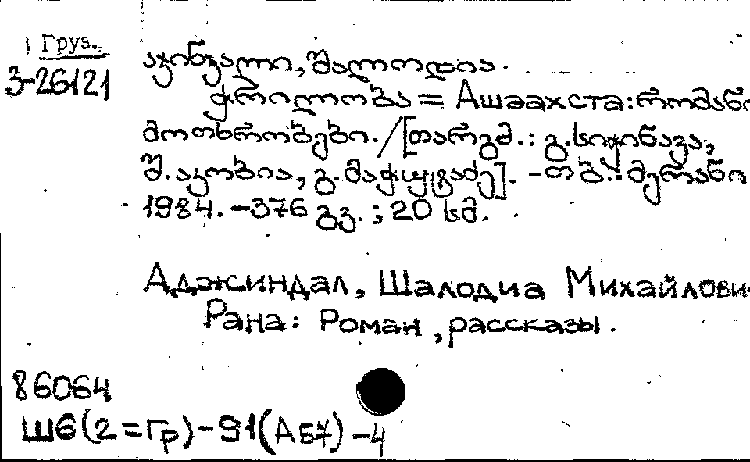 Груз.
3-26121
აჯინჯალი, შალოდია.
ჭრილობა = Ашәахста: რომანი
მოთხრობები. / [თარგმ.: გ. სიჭინავა,
შ. აკობია, გ. მაჭუტაძე]. - თბ.: მერანი
1984. - 376 გვ. ; 20 სმ.
Аджиндал, Шалодиа Михайлови
Рана: Роман, рассказы.
86064
Ш6(2=Гр)-91(Аб7)-4